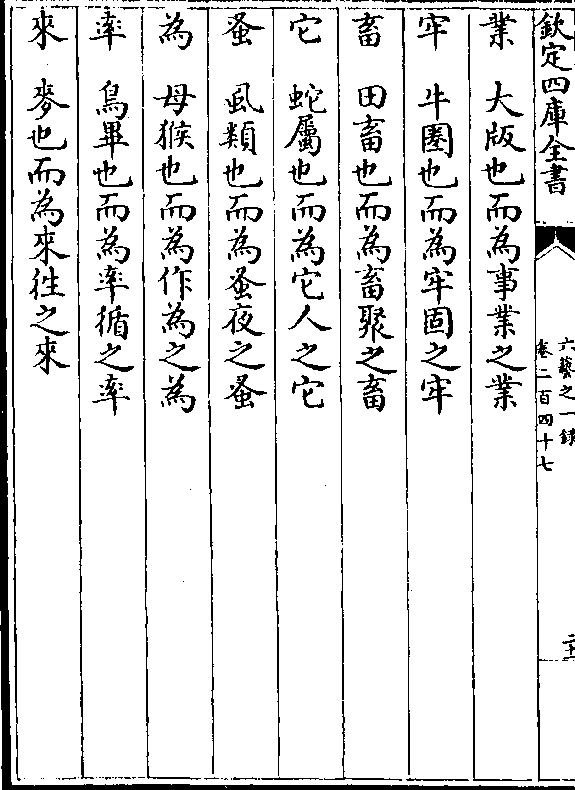 欽定四庫全書
六藝之一錄
卷二百四十七
業 大版也而為事業之業
牢 牛圈也而為牢固之牢
畜 田畜也而為畜聚之畜
它 蛇屬也而為它人之它
蚤 虱類也而為蚤夜之蚤
為 母猴也而為作為之為
率 鳥畢也而為率循之率
來 麥也而為來徃之來